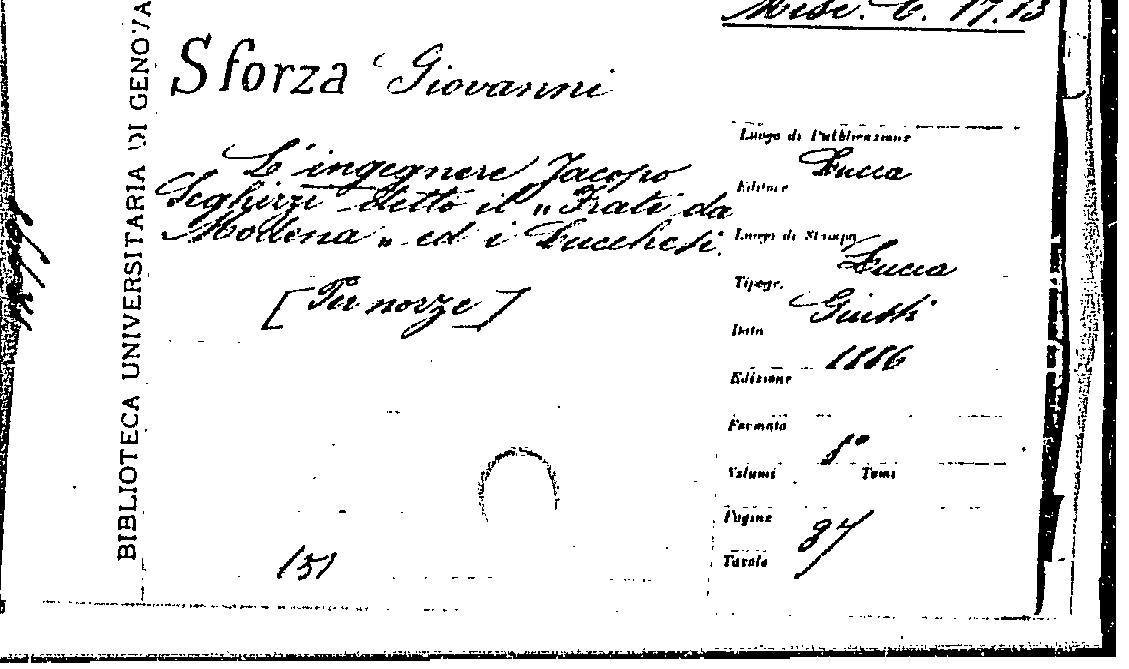 Misc. C. 17.13
BIBLIOTECA UNIVERSITARIA DI GENOVA
Sforza Giovanni
L'ingegnere Jacopo
Seghizzi detto il „Frate da
Modena„ ed i Lucchesi.
[Per nozze]
(5)
Luogo di Pubblicazione
Lucca
Editore
Luogo di Stampa
Lucca
Tipogr.
Giusti
Data
1886
Edizione
Formato
8°
Volumi Tomi
Pagine
37
Tavole